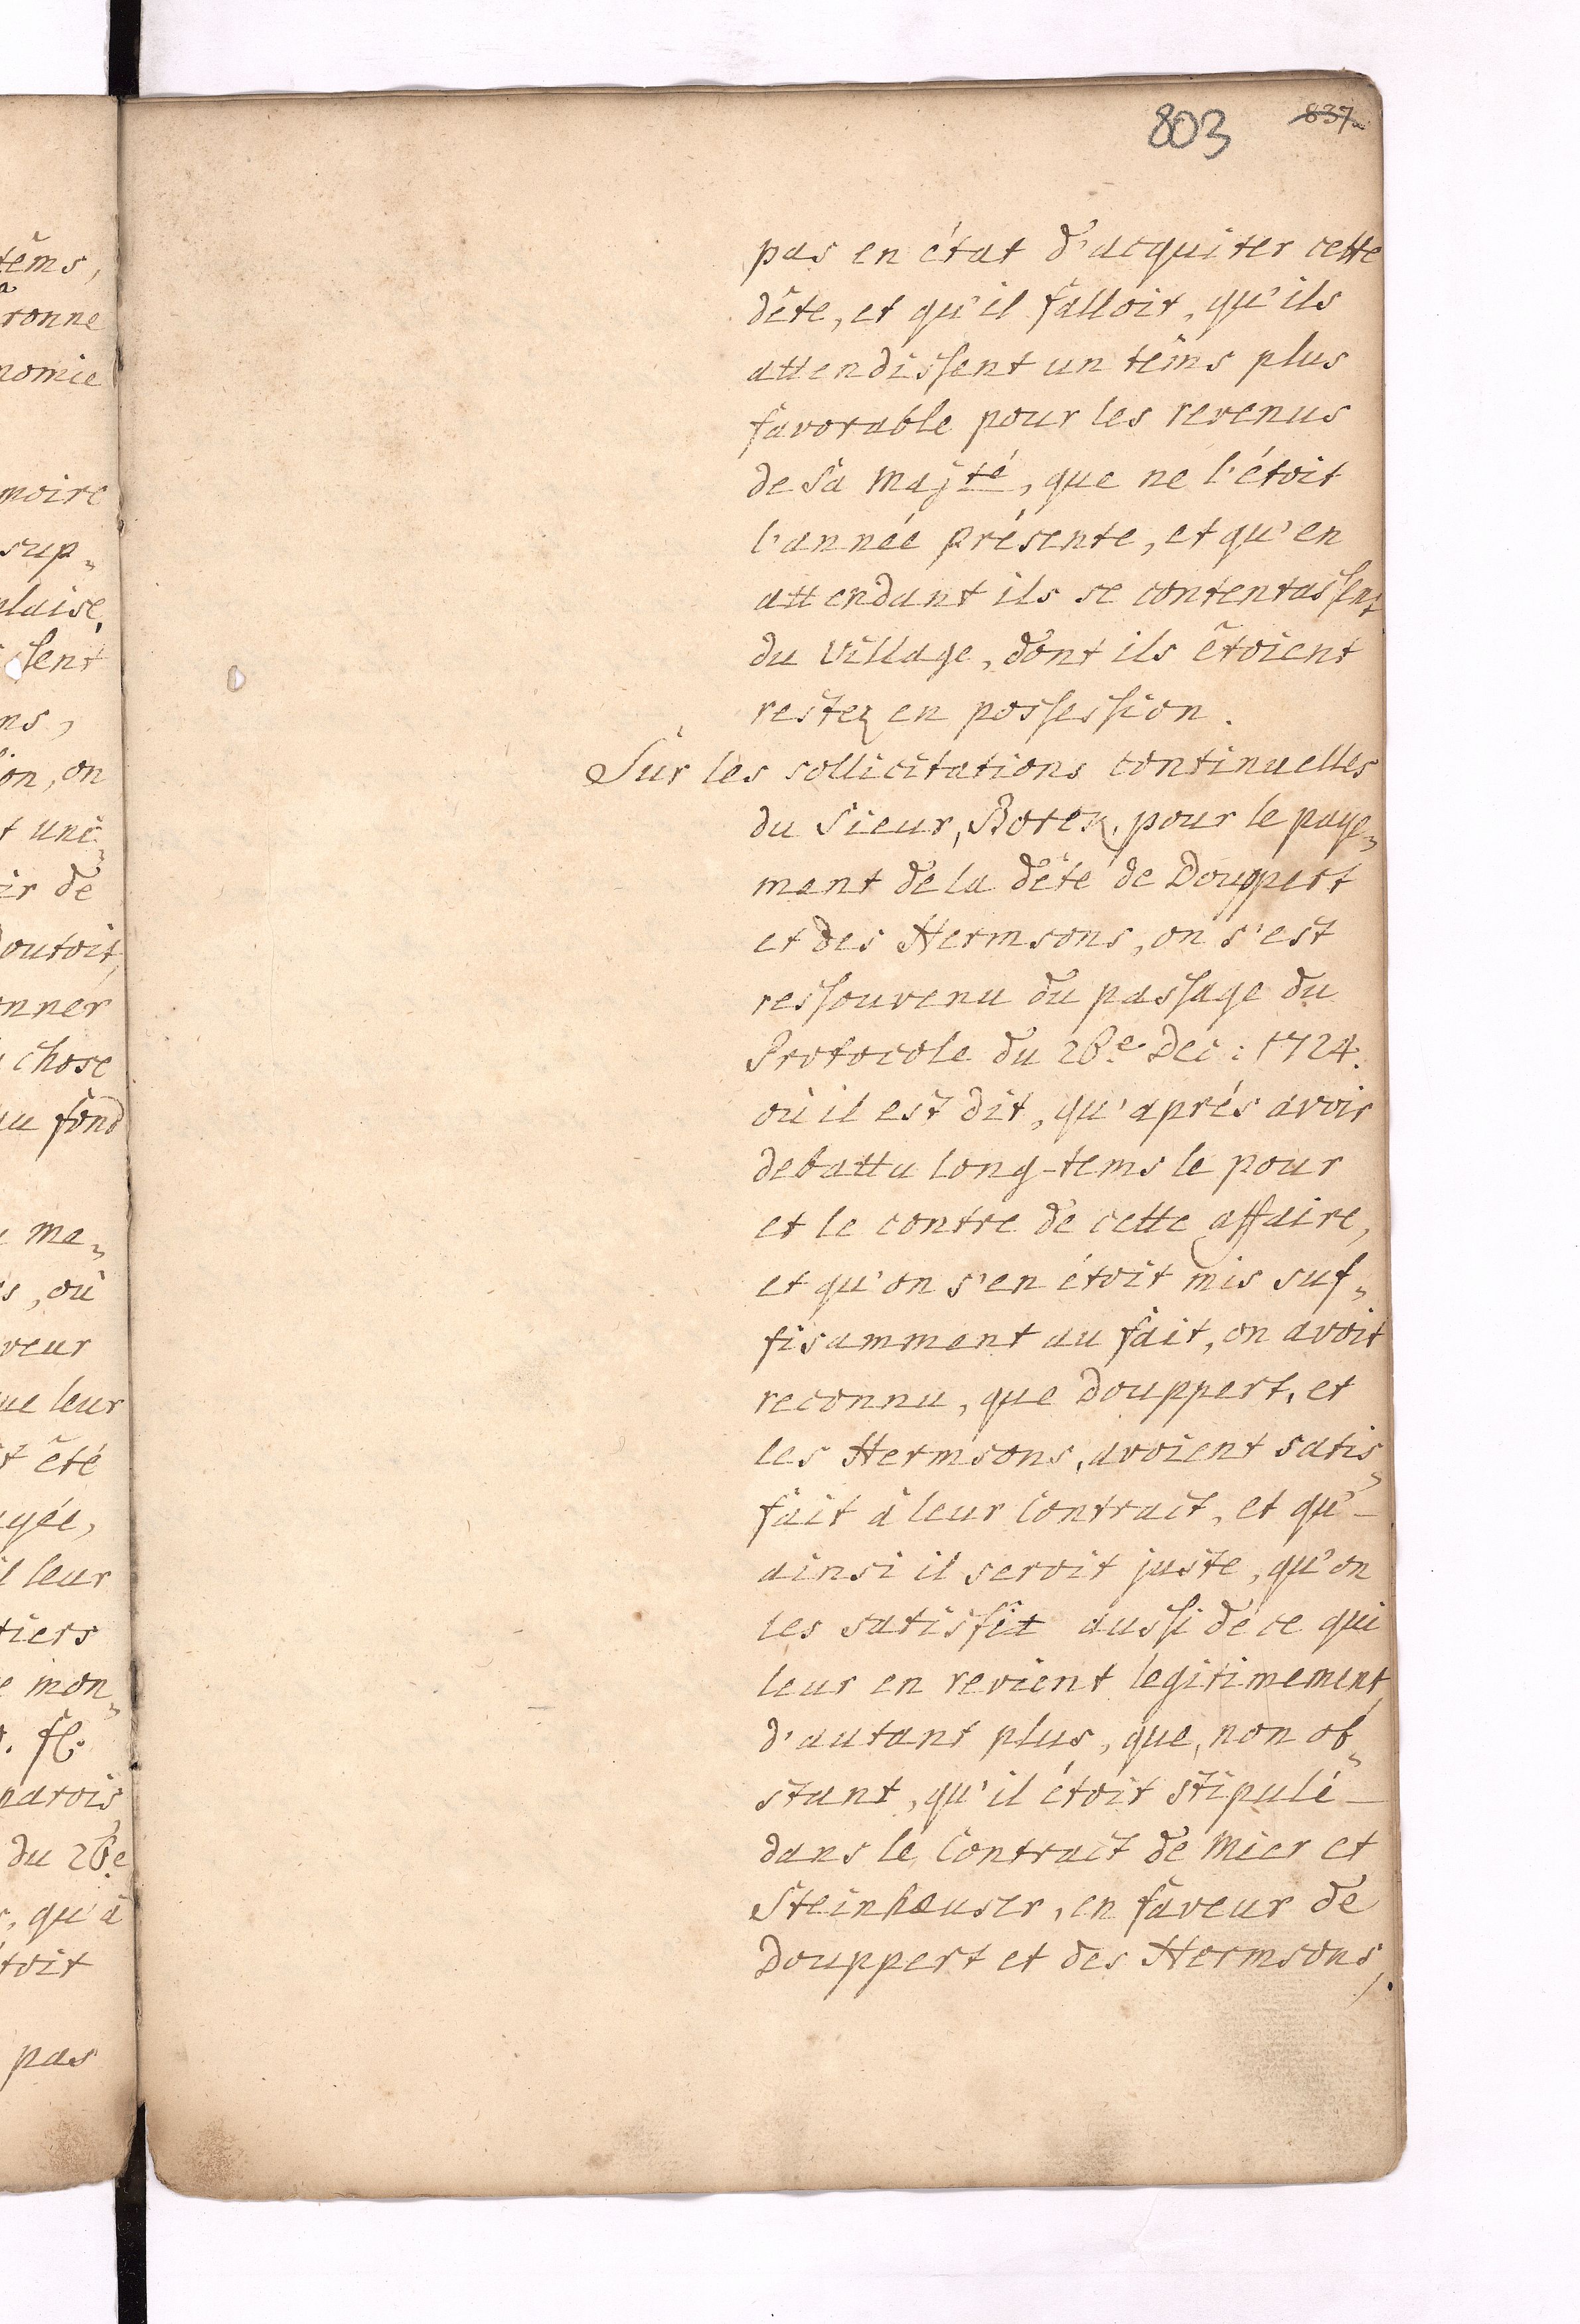 803 837
têms,
ronne
nomie
moire
sup„
plaise,
sent
ns,
on, on
t une„
ir de
doutoit,
onner
chose
au fond
ma„
s, où
veur
ue leur
t été
ayée,
il leur
tiers
e mon„
fl.
parois„
du 28.e
r, qu'à
toit
pas
pas en état d'acquiter cette
dête, et qu'il falloit, qu'ils
attendissent un têms plus
favorable pour les revenus
de Sa Majté, que ne l'étoit
l'année présente, et qu'en
attendant ils se contentassent
du village, dont ils étoient
restez en possession.
Sur les sollicitations continuelles
du Sieur, Botek, pour le paye„
ment de la dête de Douppert
et des Hermsons, on s'est
ressouvenu du passage du
Protocole du 28.e Dec: 1724.
où il est dit, qu'aprés avoir
debattu long-tems le pour
et le contre de cette affaire,
et qu'on s'en étoit mis suf„
fisamment au fait, on avoit
reconnu, que Douppert, et
les Hermsons, avoient satis„
fait à leur Contract, et qu'-
ainsi il seroit juste, qu'on
les satisfît aussi de ce qui
leur en revient legitimement,
d'autant plus, que, non ob„
stant, qu'il étoit stipulé-
dans le Contract de Mier et
Steinhæuser, en faveur de
Douppert et des Hermsons,